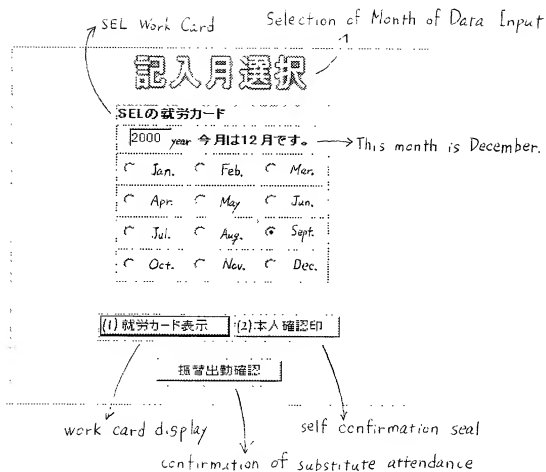 SEL Work Card
Selection of Month of Data Input
記入月選択
SELの就労カード
2000 year 今月は12月です。
This month is December.
Jan. Feb. Mar.
Apr. May Jun.
Jul. Aug. Sept.
Oct. Nov. Dec.
(1)就労カード表示 (2)本人確認印
振替出勤確認
work card display
self confirmation seal
confirmation of substitute attendance